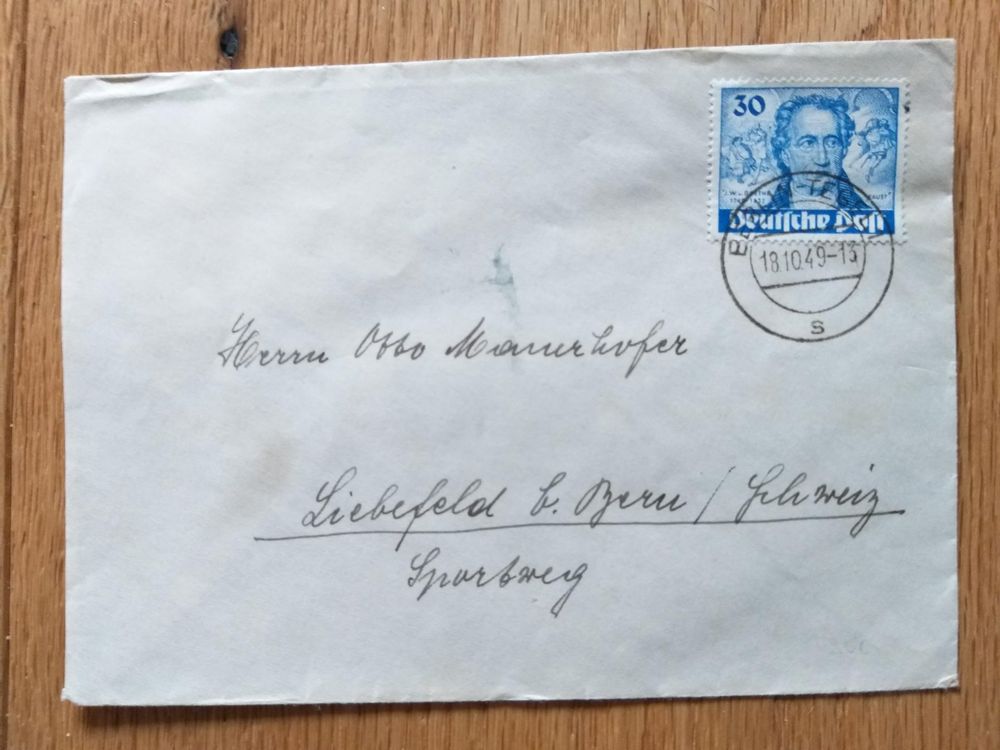 30
J.W.v. GOETHE
1749-1832
FAUST
Deutsche Post
BERLIN-TEGEL
18.10.49-13
s
Herrn Otto Mauerhofer
Liebefeld b. Bern / Schweiz
Sportweg